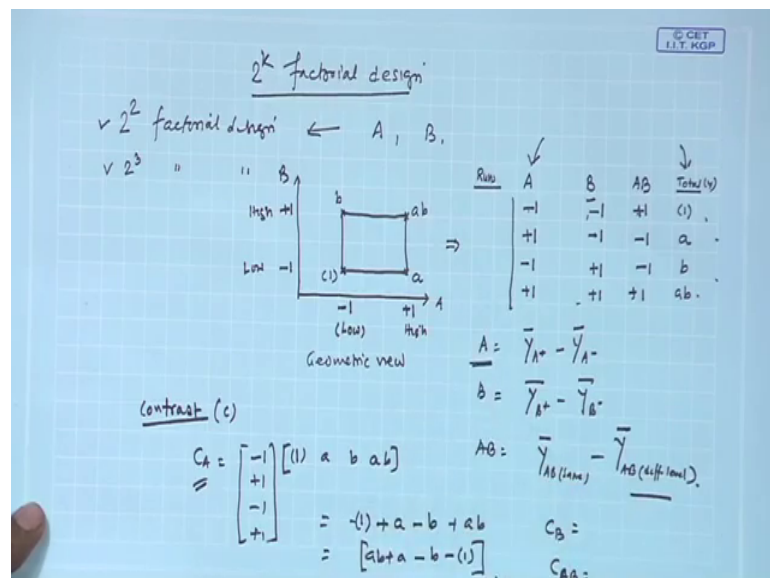 © CET
I.I.T. KGP
2^k factorial design
✓ 2^2 factorial design ← A, B.
✓ 2^3 " "
B
High +1
Low -1
b ab
(1) a
-1 +1 A
(Low) High
Geometric view
⇒
Run A B AB Total(Y)
-1 -1 +1 (1)
+1 -1 -1 a
-1 +1 -1 b
+1 +1 +1 ab
A = Ȳ_A+ - Ȳ_A-
B = Ȳ_B+ - Ȳ_B-
AB = Ȳ_AB(same) - Ȳ_AB(diff level).
Contrast (C)
C_A = [-1 +1 -1 +1] [(1) a b ab]
= -(1) + a - b + ab
= [ab + a - b - (1)]
C_B =
C_AB =